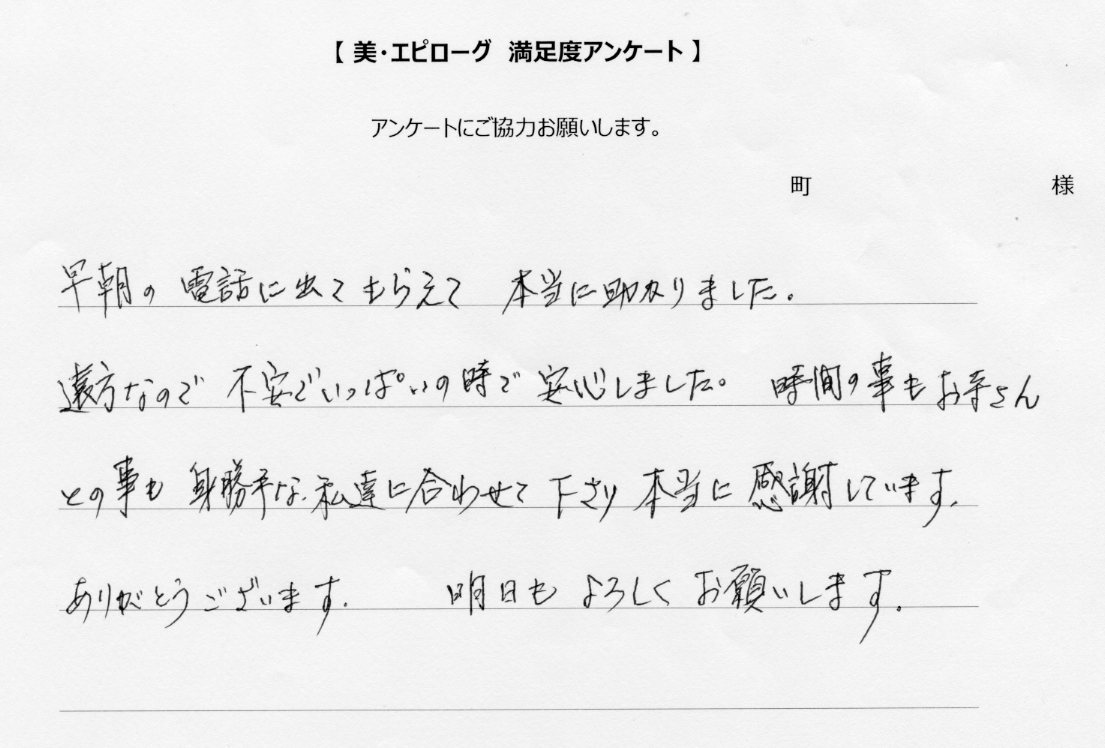 【 美・エピローグ 満足度アンケート 】
アンケートにご協力お願いします。
町 様
早朝の 電話に出てもらえて 本当に助かりました。
遠方なので 不安でいっぱいの時で 安心しました。 時間の事もお寺さん
との事も 身勝手な私達に合わせて下さり 本当に感謝しています。
ありがとうございます。 明日も よろしく お願いします。